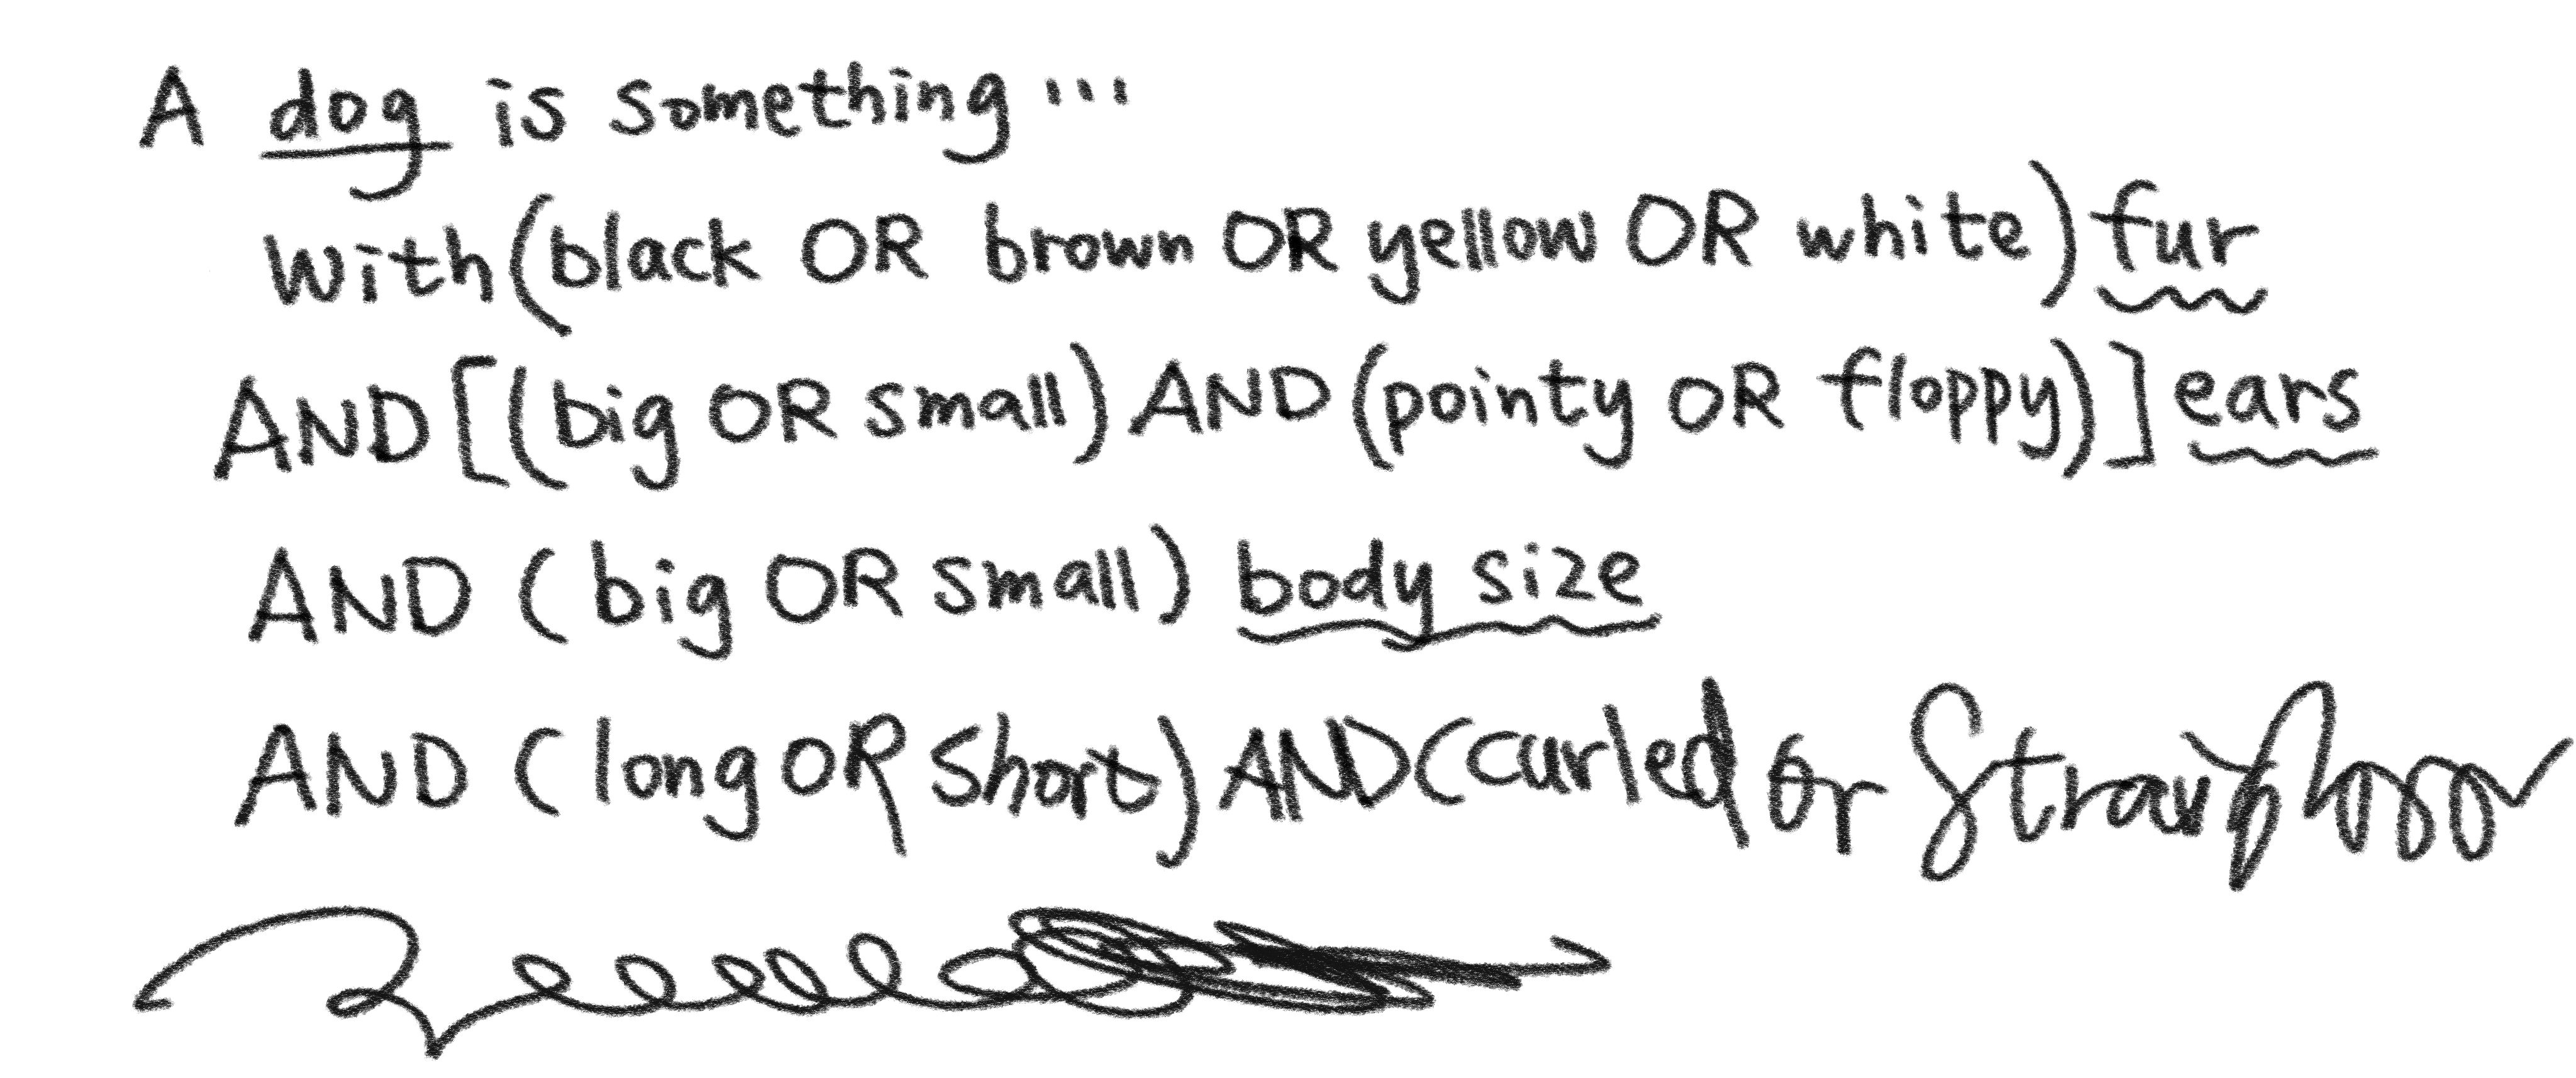 A dog is something...
with (black OR brown OR yellow OR white) fur
AND [(big OR small) AND (pointy OR floppy)] ears
AND (big OR small) body size
AND (long OR short) AND (curled or